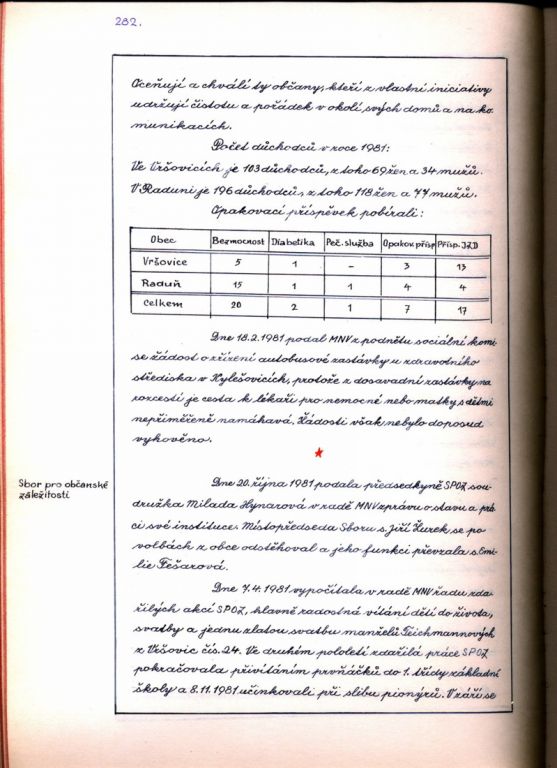 282.
Oceňují a chválí ty občany, kteří z vlastní iniciativy
udržují čistotu a pořádek v okolí svých domů a na ko
munikacích.
Počet důchodců v roce 1981:
Ve Vršovicích je 103 důchodců, z toho 69 žen a 34 mužů.
V Raduni je 196 důchodců, z toho 118 žen a 77 mužů.
Opakovací příspěvek pobírali:
Obec Bezmocnost Diabetika Peč. služba Opakov. přísp. Přísp. JZD
Vršovice 5 1 – 3 13
Raduň 15 1 1 4 4
Celkem 20 2 1 7 17
Dne 18.2.1981 podal MNV z podnětu sociální komi
se žádost o zřízení autobusové zastávky u zdravotního
střediska v Kylešovicích, protože z dosavadní zastávky na
rozcestí je cesta k lékaři pro nemocné nebo matky s dětmi
nepřiměřeně namáhavá. Žádosti však nebylo doposud
vyhověno.
Sbor pro občanské
záležitosti
Dne 20. října 1981 podala předsedkyně SPOZ sou-
družka Milada Hynarová v radě MNV zprávu o stavu a prá
ci své instituce. Místopředseda Sboru s. Jiří Žurek se po
volbách z obce odstěhoval a jeho funkci převzala s. Emi
lie Fešarová.
Dne 7.4.1981 vypočítala v radě MNV řadu zda
řilých akcí SPOZ, hlavně radostná vítání dětí do života,
svatby a jednu zlatou svatbu manželů Teichmannových
z Vršovic čís. 24. Ve druhém pololetí zdařilá práce SPOZ
pokračovala přivítáním prvňáčků do 1. třídy základní
školy a 8.11.1981 účinkovali při slibu pionýrů. V září se